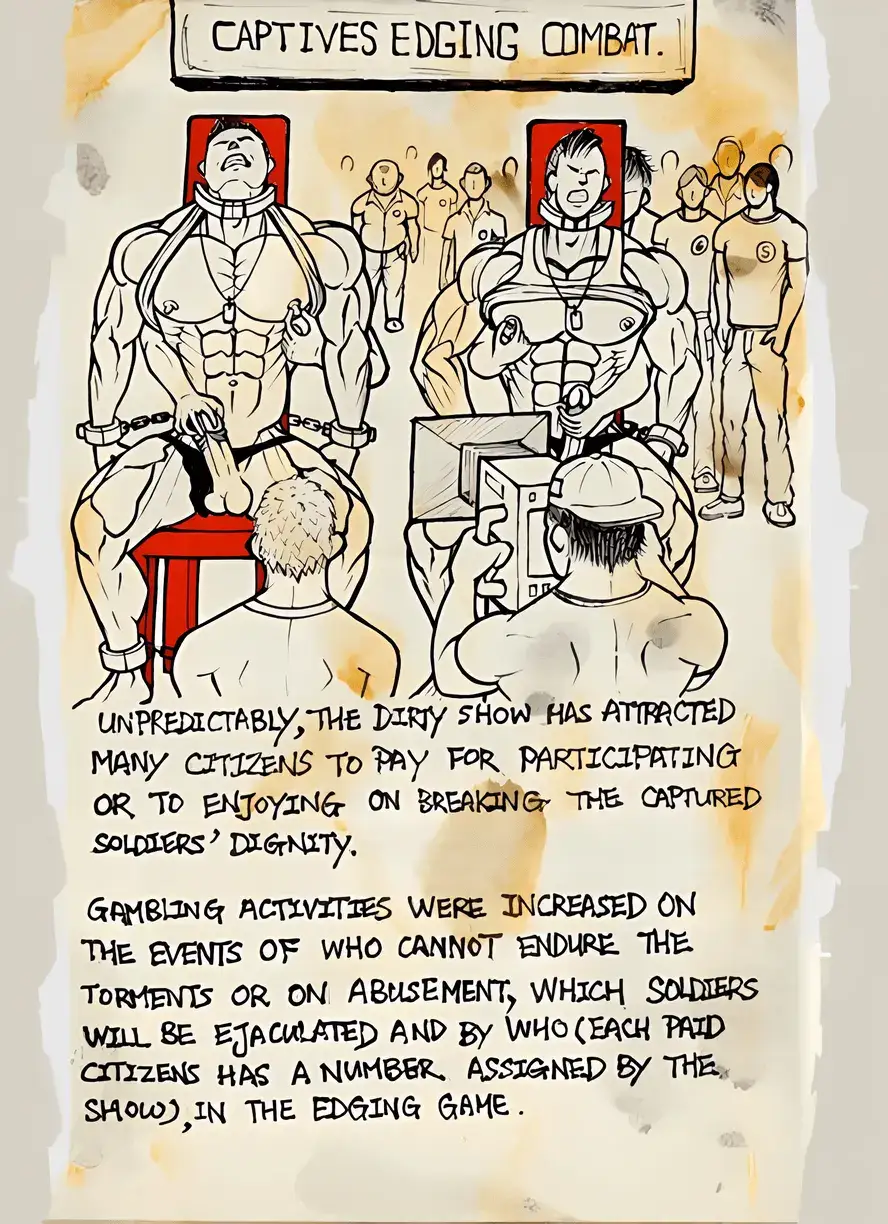 CAPTIVES EDGING COMBAT.
S
UNPREDICTABLY, THE DIRTY SHOW HAS ATTRACTED
MANY CITIZENS TO PAY FOR PARTICIPATING
OR TO ENJOYING ON BREAKING THE CAPTURED
SOLDIERS' DIGNITY.
GAMBLING ACTIVITIES WERE INCREASED ON
THE EVENTS OF WHO CANNOT ENDURE THE
TORMENTS OR ON ABUSEMENT, WHICH SOLDIERS
WILL BE EJACULATED AND BY WHO (EACH PAID
CITIZENS HAS A NUMBER ASSIGNED BY THE
SHOW), IN THE EDGING GAME.